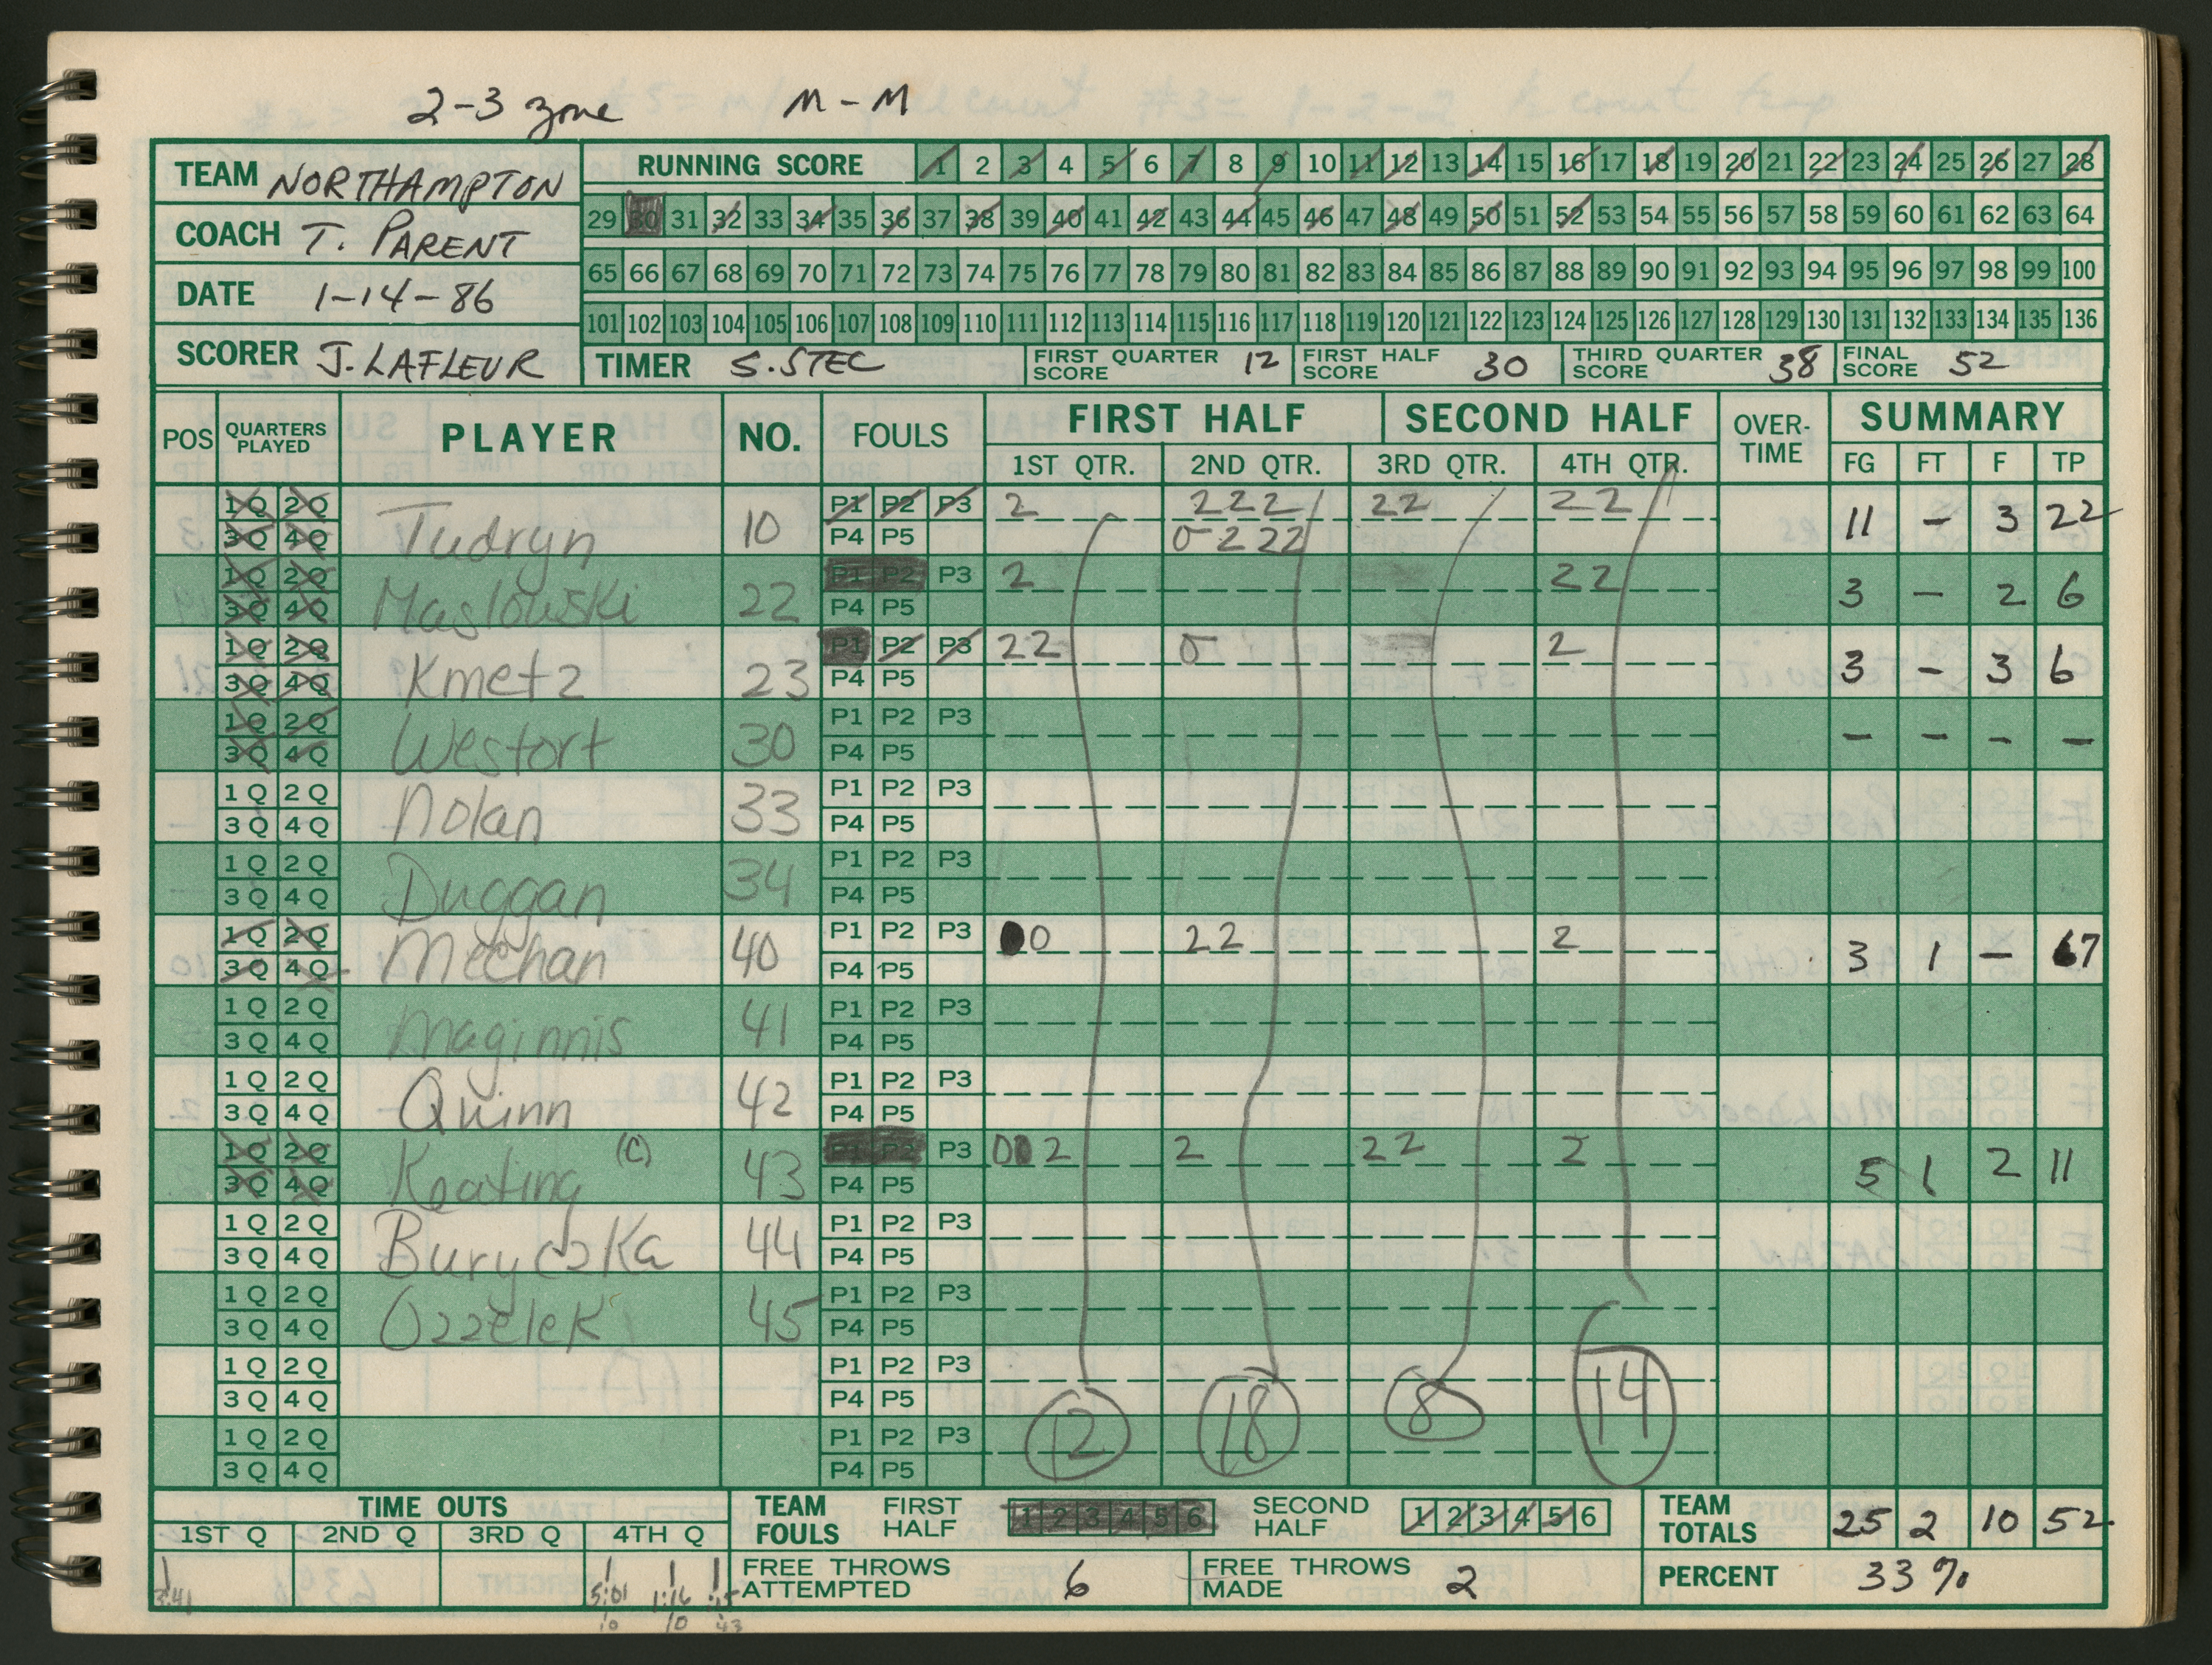 2-3 zone M-M
TEAM NORTHAMPTON
COACH T. PARENT
DATE 1-14-86
SCORER J. LAFLEUR
RUNNING SCORE 1 2 3 4 5 6 7 8 9 10 11 12 13 14 15 16 17 18 19 20 21 22 23 24 25 26 27 28
29 30 31 32 33 34 35 36 37 38 39 40 41 42 43 44 45 46 47 48 49 50 51 52 53 54 55 56 57 58 59 60 61 62 63 64
65 66 67 68 69 70 71 72 73 74 75 76 77 78 79 80 81 82 83 84 85 86 87 88 89 90 91 92 93 94 95 96 97 98 99 100
101 102 103 104 105 106 107 108 109 110 111 112 113 114 115 116 117 118 119 120 121 122 123 124 125 126 127 128 129 130 131 132 133 134 135 136
TIMER S. STEC FIRST QUARTER SCORE 12 FIRST HALF SCORE 30 THIRD QUARTER SCORE 38 FINAL SCORE 52
POS QUARTERS PLAYED PLAYER NO. FOULS FIRST HALF SECOND HALF OVER-TIME SUMMARY
1ST QTR. 2ND QTR. 3RD QTR. 4TH QTR. FG FT F TP
1Q 2Q P1 P2 P3 2 222 22 22
3Q 4Q Tudryn 10 P4 P5 0222 11 - 3 22
1Q 2Q P1 P2 P3 2 22
3Q 4Q Maslowski 22 P4 P5 3 - 2 6
1Q 2Q P1 P2 P3 22 0 2
3Q 4Q Kmetz 23 P4 P5 3 - 3 6
1Q 2Q P1 P2 P3
3Q 4Q Westort 30 P4 P5 - - - -
1Q 2Q P1 P2 P3
3Q 4Q Nolan 33 P4 P5
1Q 2Q P1 P2 P3
3Q 4Q Duggan 34 P4 P5
1Q 2Q P1 P2 P3 0 22 2
3Q 4Q Meehan 40 P4 P5 3 1 - 7
1Q 2Q P1 P2 P3
3Q 4Q Maginnis 41 P4 P5
1Q 2Q P1 P2 P3
3Q 4Q Quinn 42 P4 P5
1Q 2Q (C) P1 P2 P3 0 2 2 22 2
3Q 4Q Keating 43 P4 P5 5 1 2 11
1Q 2Q P1 P2 P3
3Q 4Q Buryczka 44 P4 P5
1Q 2Q P1 P2 P3
3Q 4Q Ozzelek 45 P4 P5
1Q 2Q P1 P2 P3
3Q 4Q P4 P5 12 18 8 14
1Q 2Q P1 P2 P3
3Q 4Q P4 P5
TIME OUTS TEAM FOULS FIRST HALF 1 2 3 4 5 6 SECOND HALF 1 2 3 4 5 6 TEAM TOTALS 25 2 10 52
1ST Q 2ND Q 3RD Q 4TH Q
3:41 5:01 1:16 :15 FREE THROWS ATTEMPTED 6 FREE THROWS MADE 2 PERCENT 33%
10 10 43